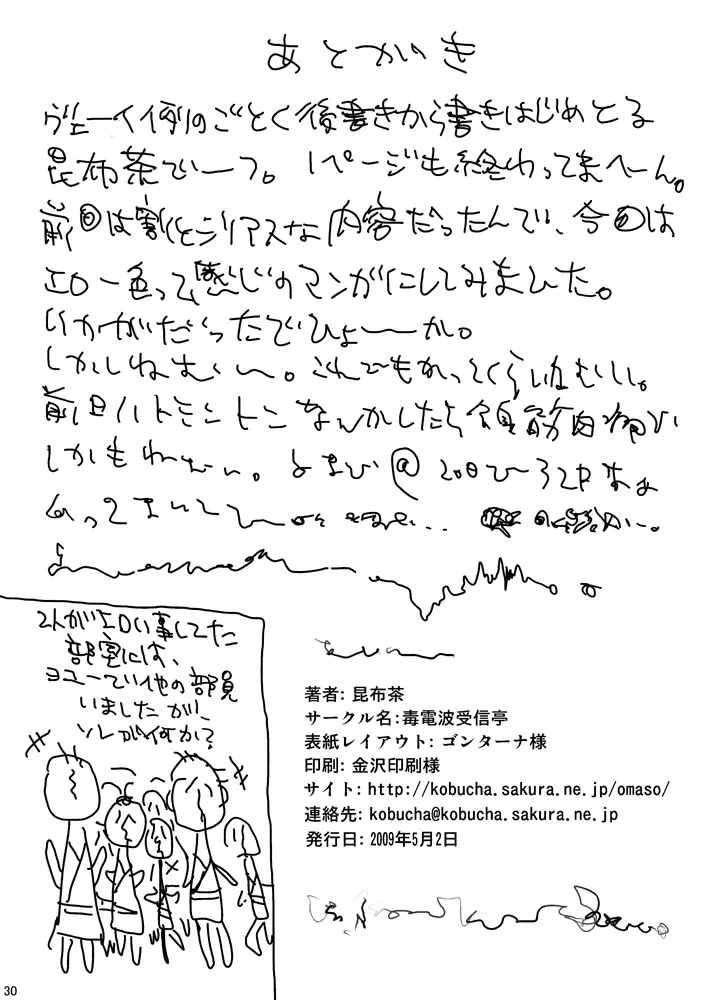 あとがき
ヴェーイ例のごとく後書きから書きはじめとる
昆布茶でーフ。1ページも終わってまへーん。
前回は割とシリアスな内容だったんで、今回は
エロ一色って感じのマンガにしてみまひた。
いかがだったでひょーーか。
しかしねむい〜。これでもかってくらいねむいし。
前日バトミントンなんかしたら全身筋肉痛だい
しかもねむい。
2人がエロい事してた
部室には、
ヨユーで他の部員
いましたが、
ソレが何か?
著者: 昆布茶
サークル名:毒電波受信亭
表紙レイアウト: ゴンターナ様
印刷: 金沢印刷様
サイト: http://kobucha.sakura.ne.jp/omaso/
連絡先: kobucha@kobucha.sakura.ne.jp
発行日: 2009年5月2日
30